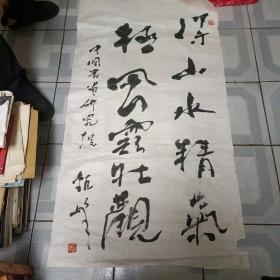 深山水精氣
極風雲壯觀
中國書畫研究院